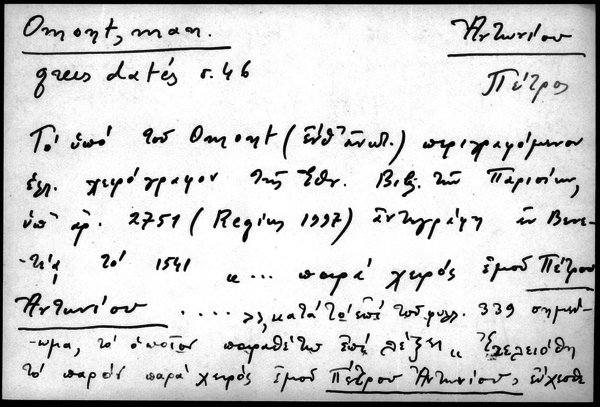 Omont, man.
grecs datés σ. 46
Ἀντωνίου
Πέτρος
Τὸ ὑπὸ τοῦ Omont (ἔνθ' ἀνωτ.) περιγραφόμενον
ἑλλ. χειρόγραφον τῆς Ἐθν. Βιβλ. τῶν Παρισίων,
ὑπ' ἀρ. 2751 (Regius 1997) ἀντεγράφη ἐν Βενε-
-τίᾳ τὸ 1541 «... παρὰ χειρὸς ἐμοῦ Πέτρου
Ἀντωνίου .....», κατὰ τὸ ἐπὶ τοῦ φυλλ. 339 σημεί-
-ωμα, τὸ ὁποῖον παραθέτω ἐπὶ λέξει « Ἐτελειόθη
τὸ παρὸν παρὰ χειρὸς ἐμοῦ Πέτρου Ἀντωνίου, εὔχεσθε